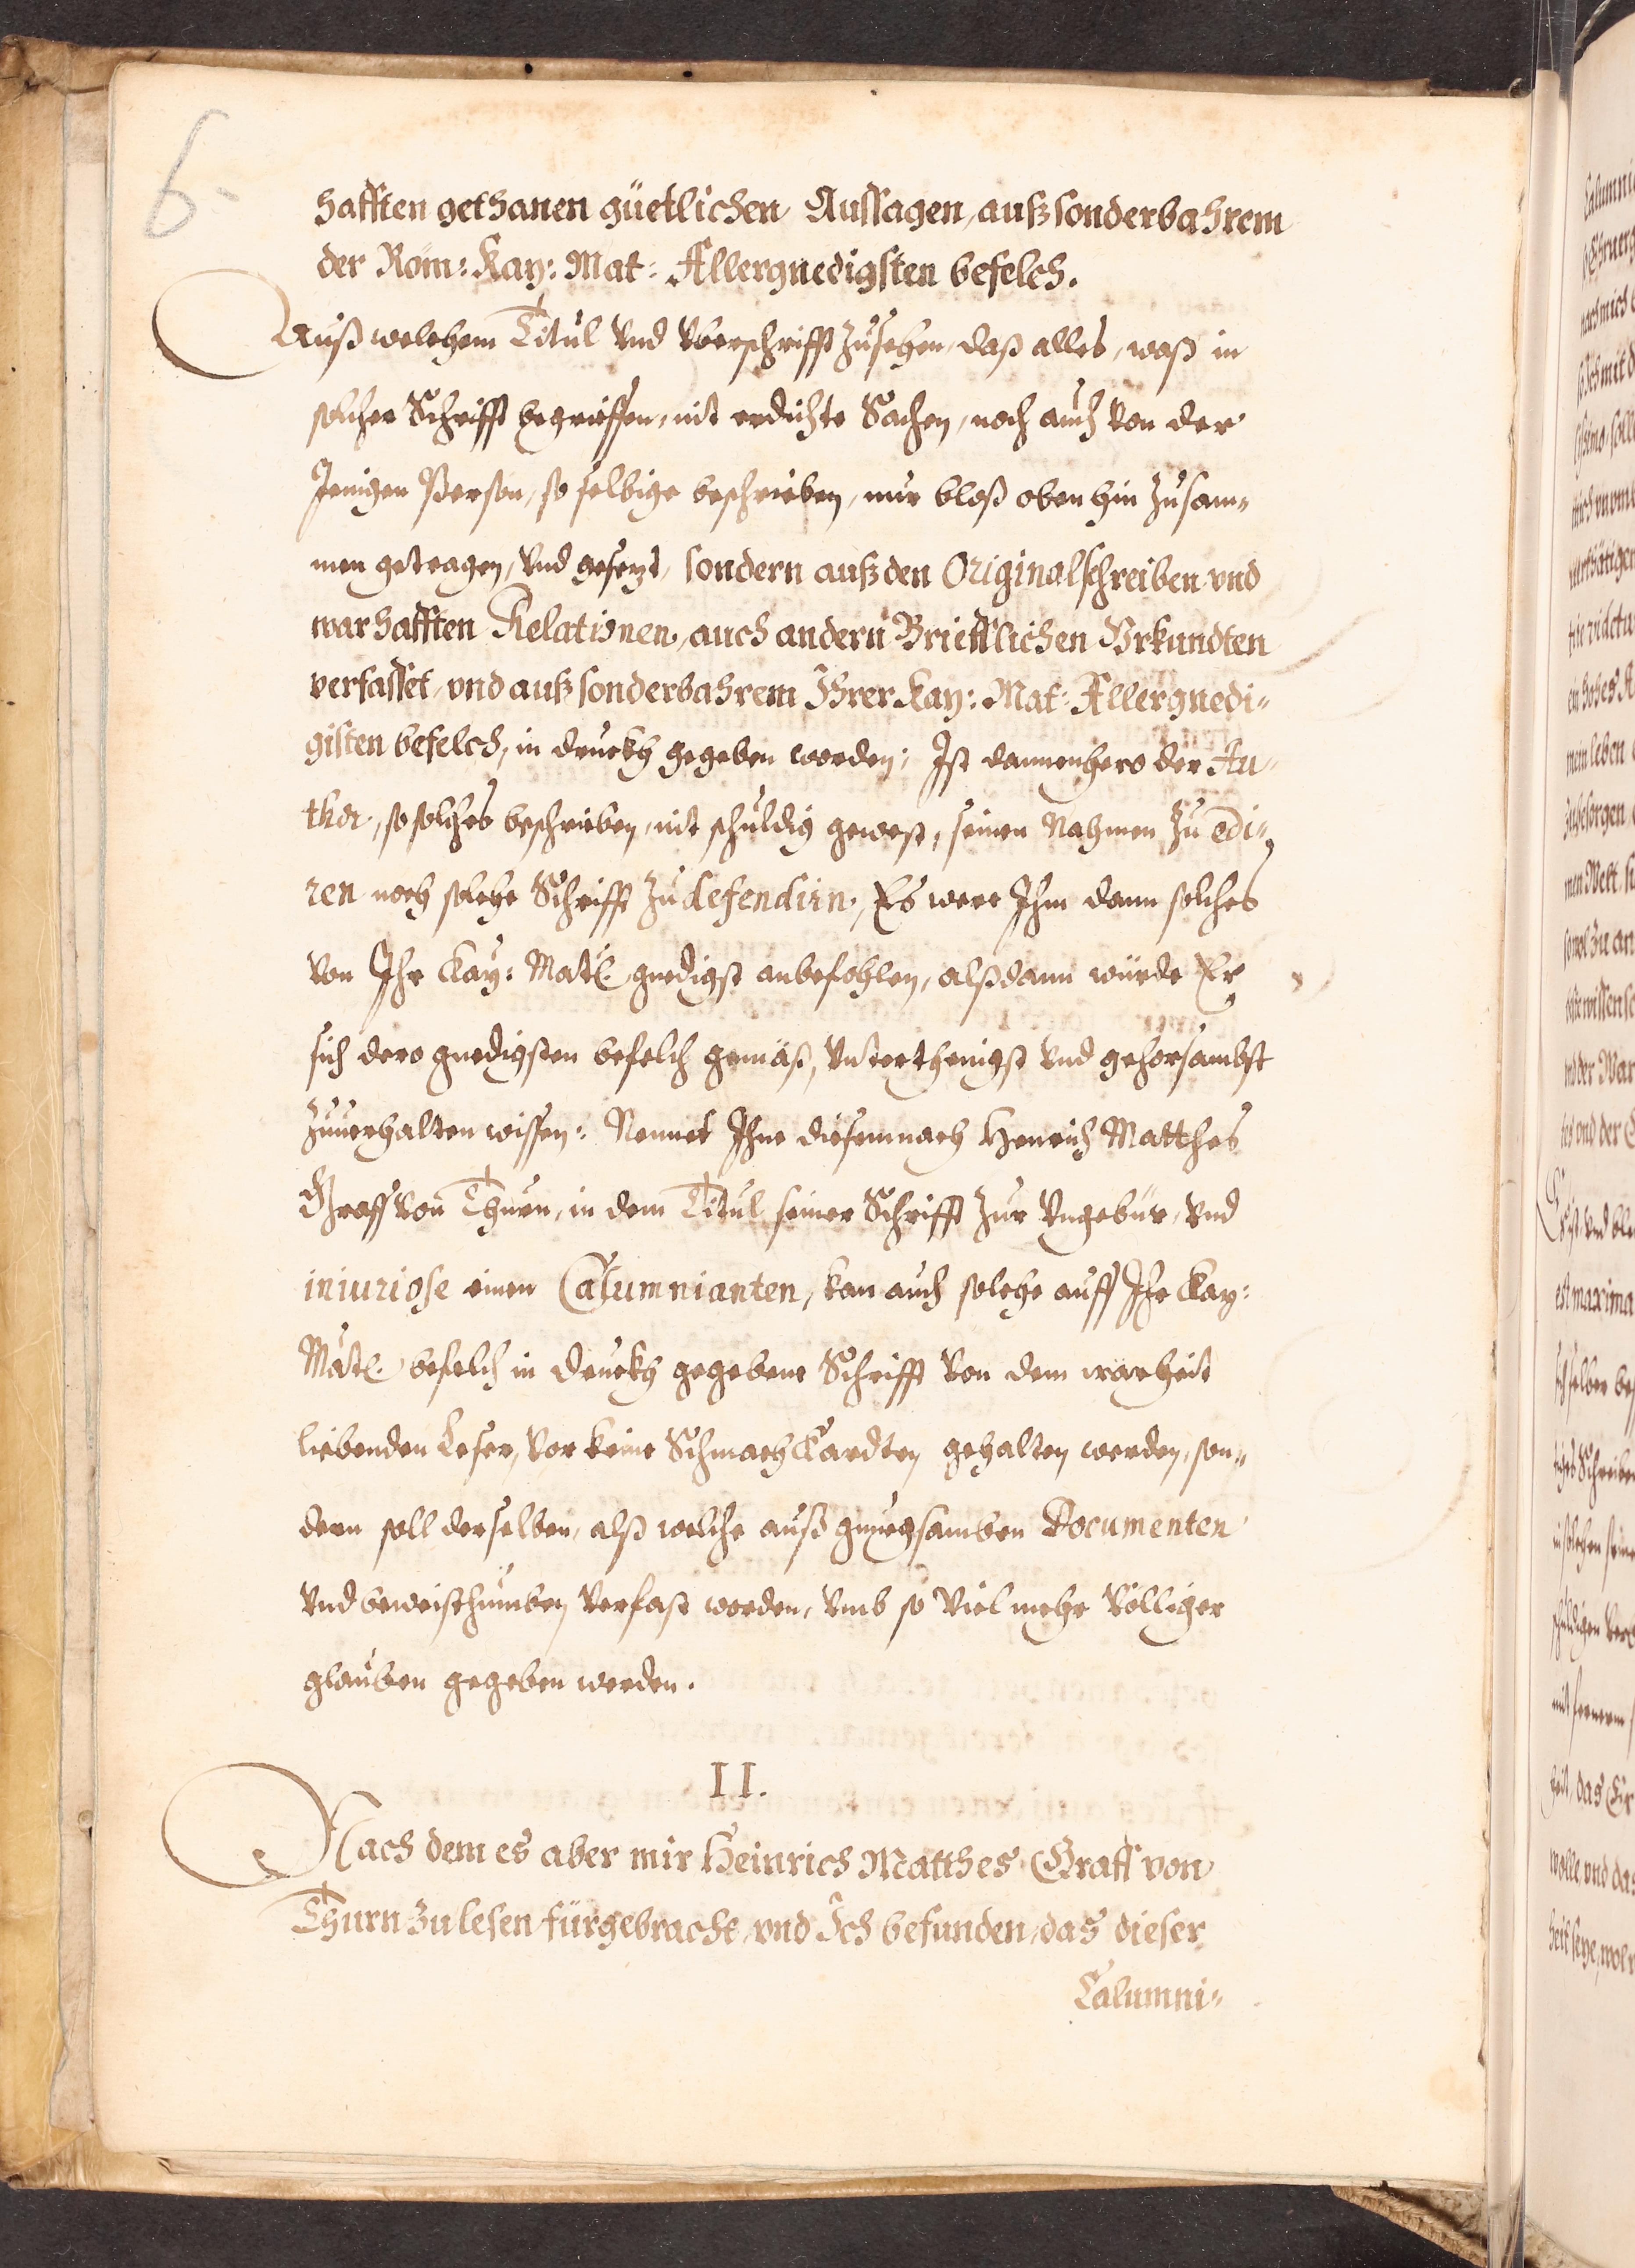 6.
hafften gethanen güetlichen Aussagen, auß sonderbahrem
der Röm: Kay: Mat: Allergnedigsten befelch.
Auß welchem Titul vnd vberschrifft zusehen, daß alles, waß in
solcher Schrifft begrieffen, nit erdichte Sachen, noch auch von der
Jenigen Person, so selbige beschrieben, nur bloß oben hin zusam¬
men getragen, vnd gesezt, sondern auß den Originalschreiben vnd
warhafften Relationen, auch andern Brieflichen Vrkundten
verfasset, vnd auß sonderbahrem Ihrer Kay: Mat: Allergnedi¬
gisten befelch, in druckh gegeben worden; Ist dannenhero der Au¬
thor, so solches beschrieben, nit schuldig gewest, seinen Nahmen zu edi¬
ren noch solche Schrifft zu defendirn, Es were Ihm dann solches
von Ihr Kay: Matt. gnedigst anbefohlen, alßdann würde Er
sich dero gnedigsten befelch gemäß, vnterthenigst vnd gehorsambst
zuuerhalten wissen: Nennet Ihne diesemnach Henrich Matthes
Graff von Thurn, in dem Titul seiner Schrifft zur vngebür, vnd
iniuriose einen Calumnianten, kan auch solche auff Ihr Kay:
Matt. befelch in druckh gegebene Schrifft von dem warheit
liebenden Leser, vor keine Schmachkardten gehalten werden, son¬
dern soll derselben, alß welche auß gnuegsamben Documenten
vnd beweisthumben verfast worden, vmb so viel mehr völliger
glauben gegeben werden.
II.
Nach dem es aber mir Heinrich Matthes Graff von
Thurn zu lesen fürgebracht, vnd Ich befunden, das dieser
Calumni¬